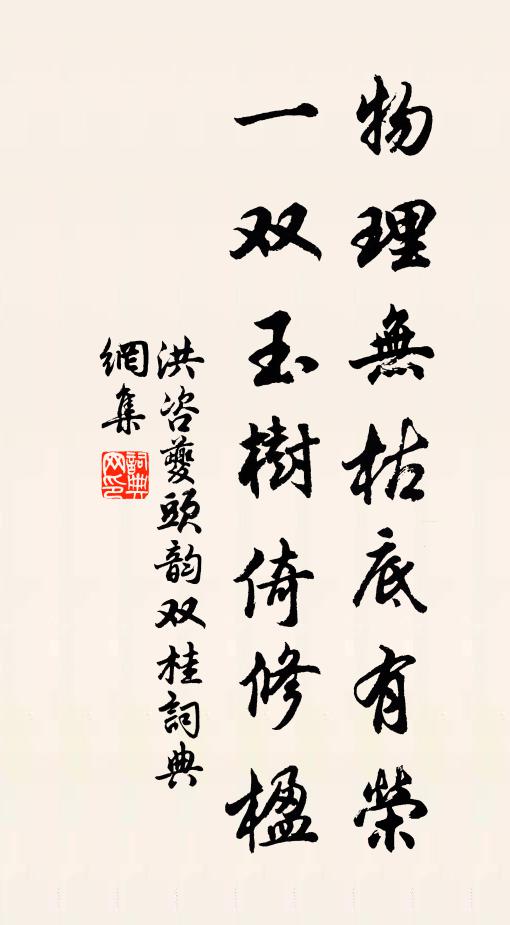 物理無枯底有榮
一双玉樹倚修楹
洪咨夔頭韵双桂詞典
網集
詞典网印